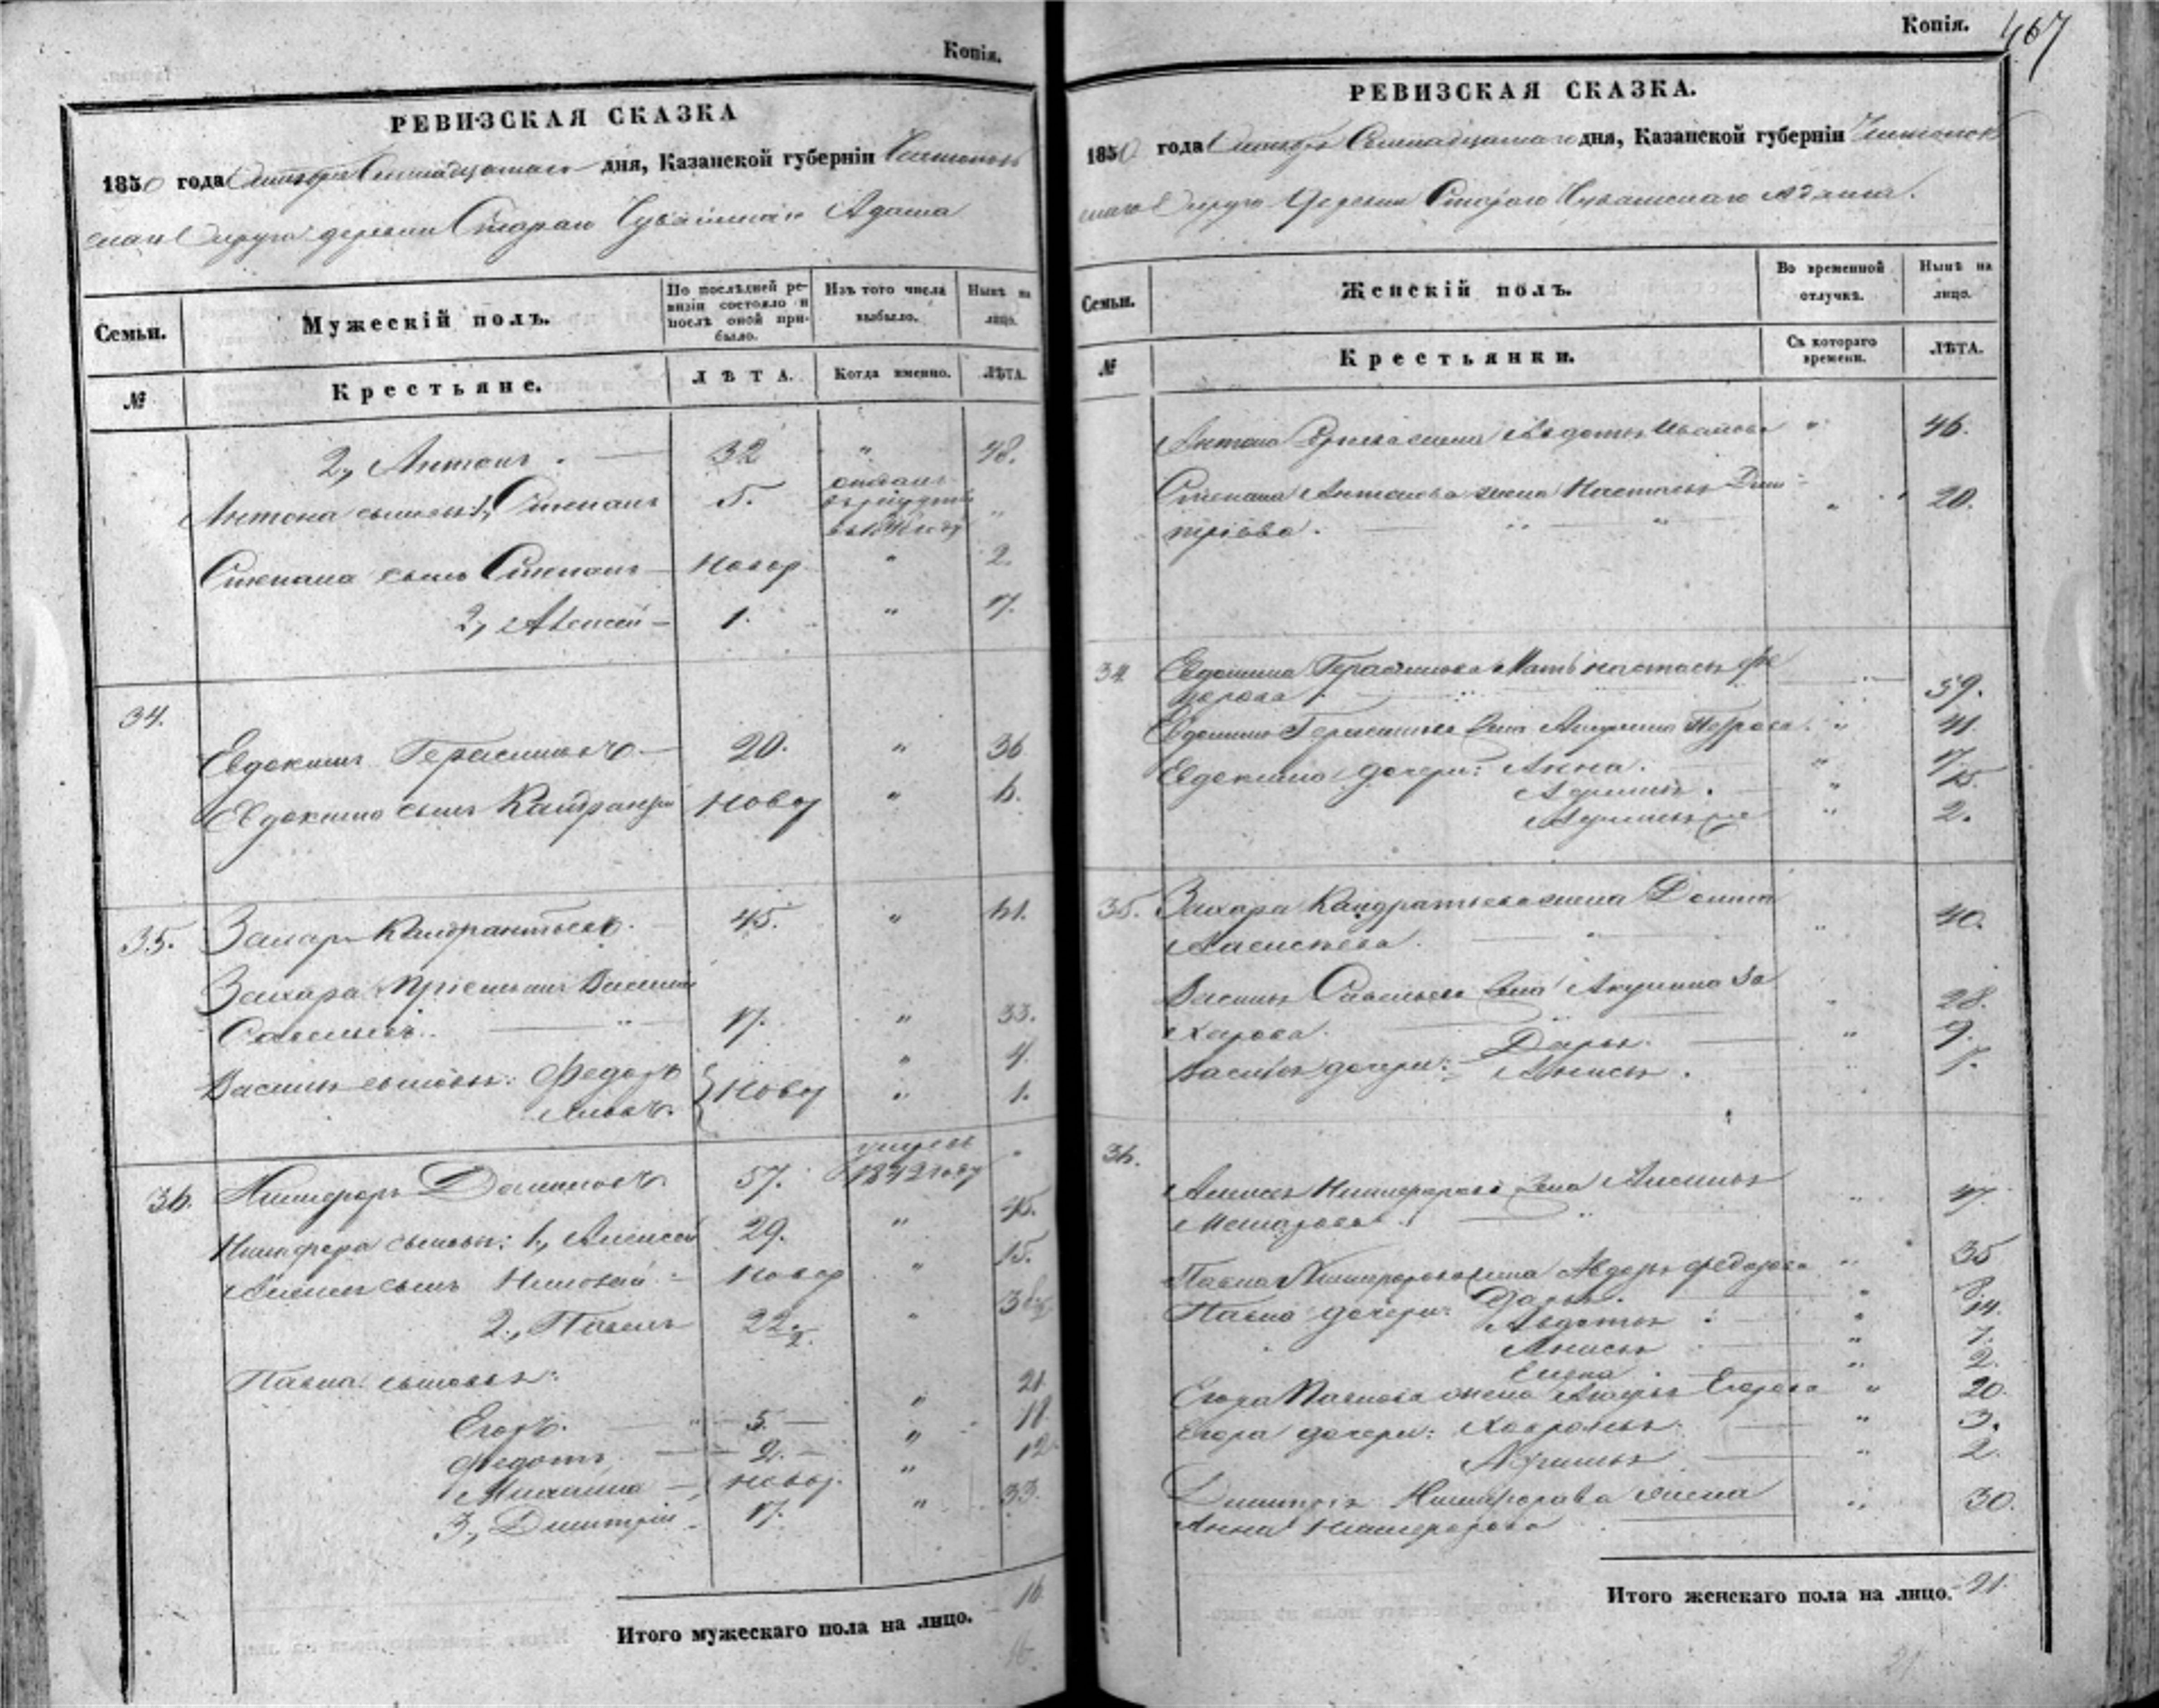 Копія.
РЕВИЗСКАЯ СКАЗКА
1850 года Октября дня, Казанской губерніи Чистополь
скаго Округа деревни Стараго Чувашскаго Адама
Семьи.
Мужескій полъ.
По послѣдней ре-
визіи состояло и
послѣ оной при-
было.
Изъ того числа
выбыло.
Нынѣ на
лицо.
№
Крестьяне.
ЛѢТА.
Когда именно.
ЛѢТА.
2, Антонъ . — 32 " 48.
Антона сыновья: 1, Степанъ 5. отданъ
въ рекруты "
Степана сынъ Степанъ — новор " 2.
2, Алексей — 1. " 17.
34.
Евдокимъ Герасимовъ — 20. " 36
Евдокима сынъ новор " 6.
35. Захаръ Кондратьевъ. 45. " 61.
Захара пріемышъ Василій
Савельевъ. — " 17. " 33.
Василья сыновья: Федоръ } новор " 4.
Иванъ. " 1.
36. Никифоръ 57. умеръ
1842 году "
Никифора сыновья: 1, Алексей 29. " 45.
Алексея сынъ Николай — новор " 15.
2, Павелъ 22 ½ " 38 ½
Павла сыновья:
Егоръ. — " 5. — " 21
Федотъ — 2. — " 18
Михаила — новор. " 12
3, Дмитрій 17. " 33.
Итого мужескаго пола на лицо. 16
16
Копія. 467
РЕВИЗСКАЯ СКАЗКА.
1850 года Октября дня, Казанской губерніи Чистополь
скаго Округа Деревни Стараго Чувашскаго Адама.
Семьи.
Женскій полъ.
Во временной
отлучкѣ.
Нынѣ на
лицо.
№
Крестьянки.
Съ котораго
времени.
ЛѢТА.
Антона жена Авдотья Иванова " 46.
Степана Антонова жена Настасья Дми-
тріева. — " " " 20.
34 Евдокима Герасимова Мать настасья Фе
дорова . — " 59.
Евдокима Герасимова жена Акулина Петрова. " 41
Евдокима дочери: Анна. " 17.
" 15.
" 2.
35. Захара Кондратьева жена
. — " " 40.
Василья Савельева жена Акулина За
харова. " 28.
Василья дочери: Дарья. — " 9.
Анисья . 7.
36.
Алексея Никифорова жена
. — " " 47.
Павла Никифорова жена Федорова " 35
Павла дочери: Дарья. " 8
Авдотья " 14.
Анисья " 7.
Елена " 2.
Егора Павлова жена Егорова " 20.
Егора дочери: — " 3.
— " 2.
Дмитрія Никифорова жена " 30.
Анна Никифорова
Итого женскаго пола на лицо. 21.
21